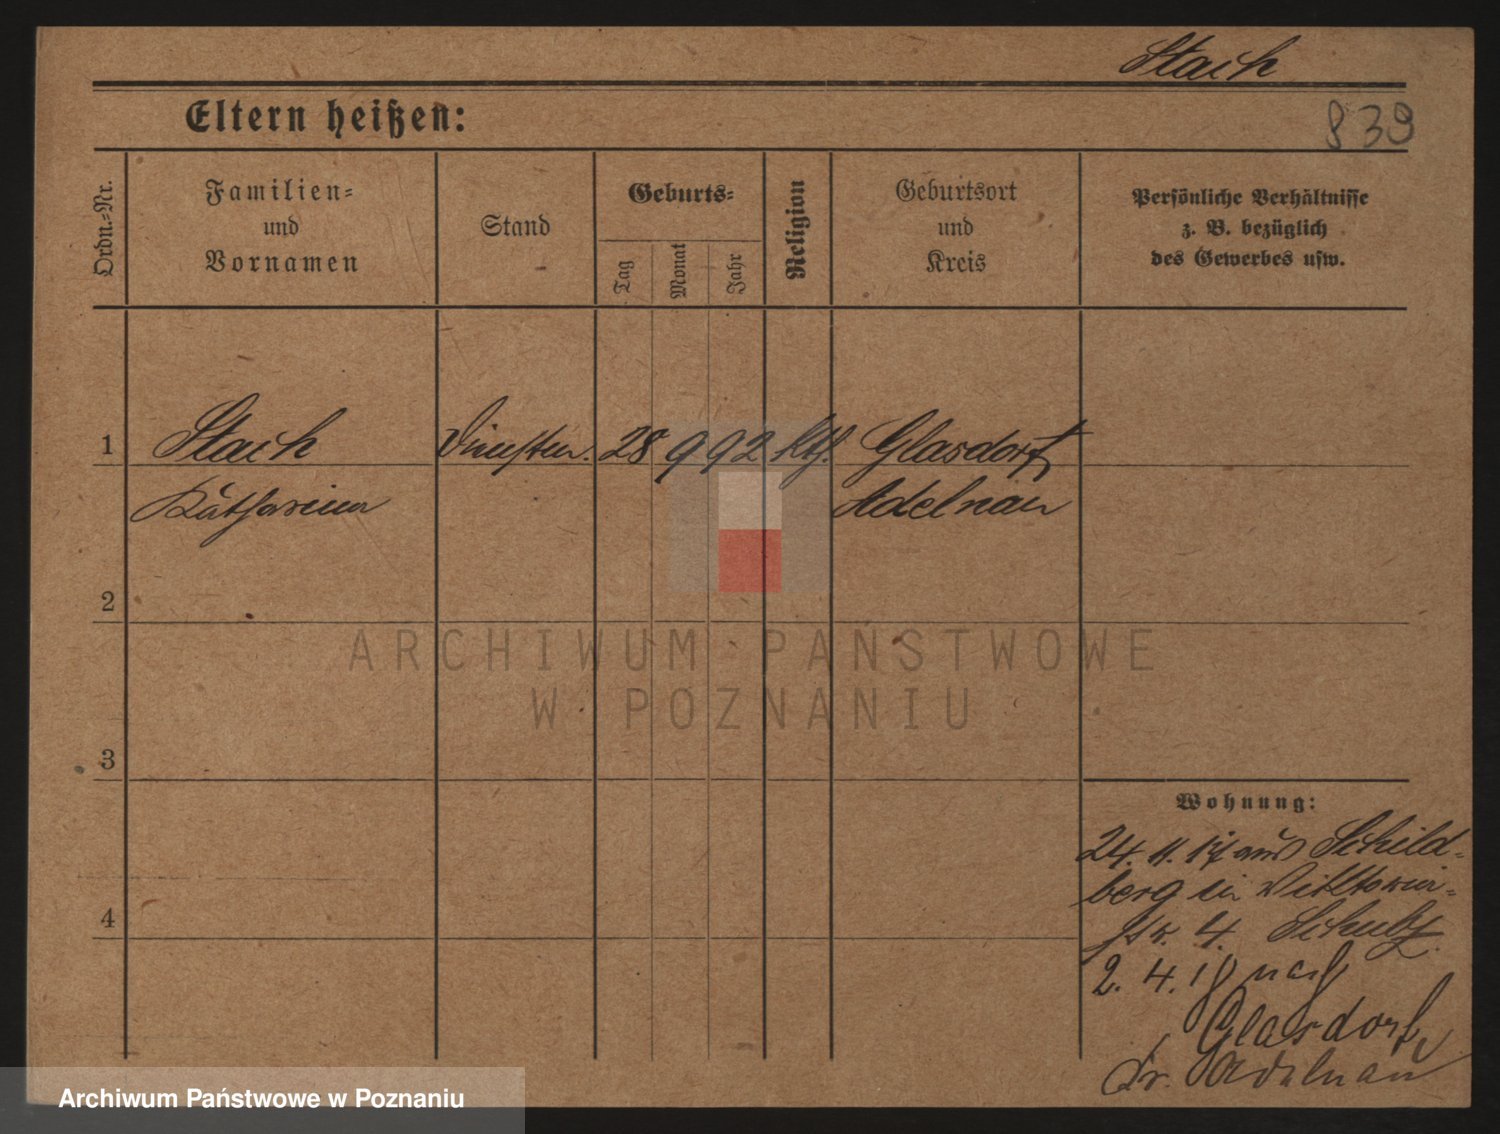 Stach
Eltern heißen:
839
Ordn.-Nr.
Familien-
und
Vornamen
Stand
Geburts-
Tag
Monat
Jahr
Religion
Geburtsort
und
Kreis
Persönliche Verhältnisse
z. B. bezüglich
des Gewerbes usw.
1
Stach 28 9 92 kth. Glasdorf
Katharina Adelnau
2
ARCHIWUM PAŃSTWOWE
W POZNANIU
3
Wohnung:
24. 11. 17 aus Schild-
berg in
4. Schulz
2. 4. 18 nach
Glasdorf
Kr. Adelnau
4
Archiwum Państwowe w Poznaniu